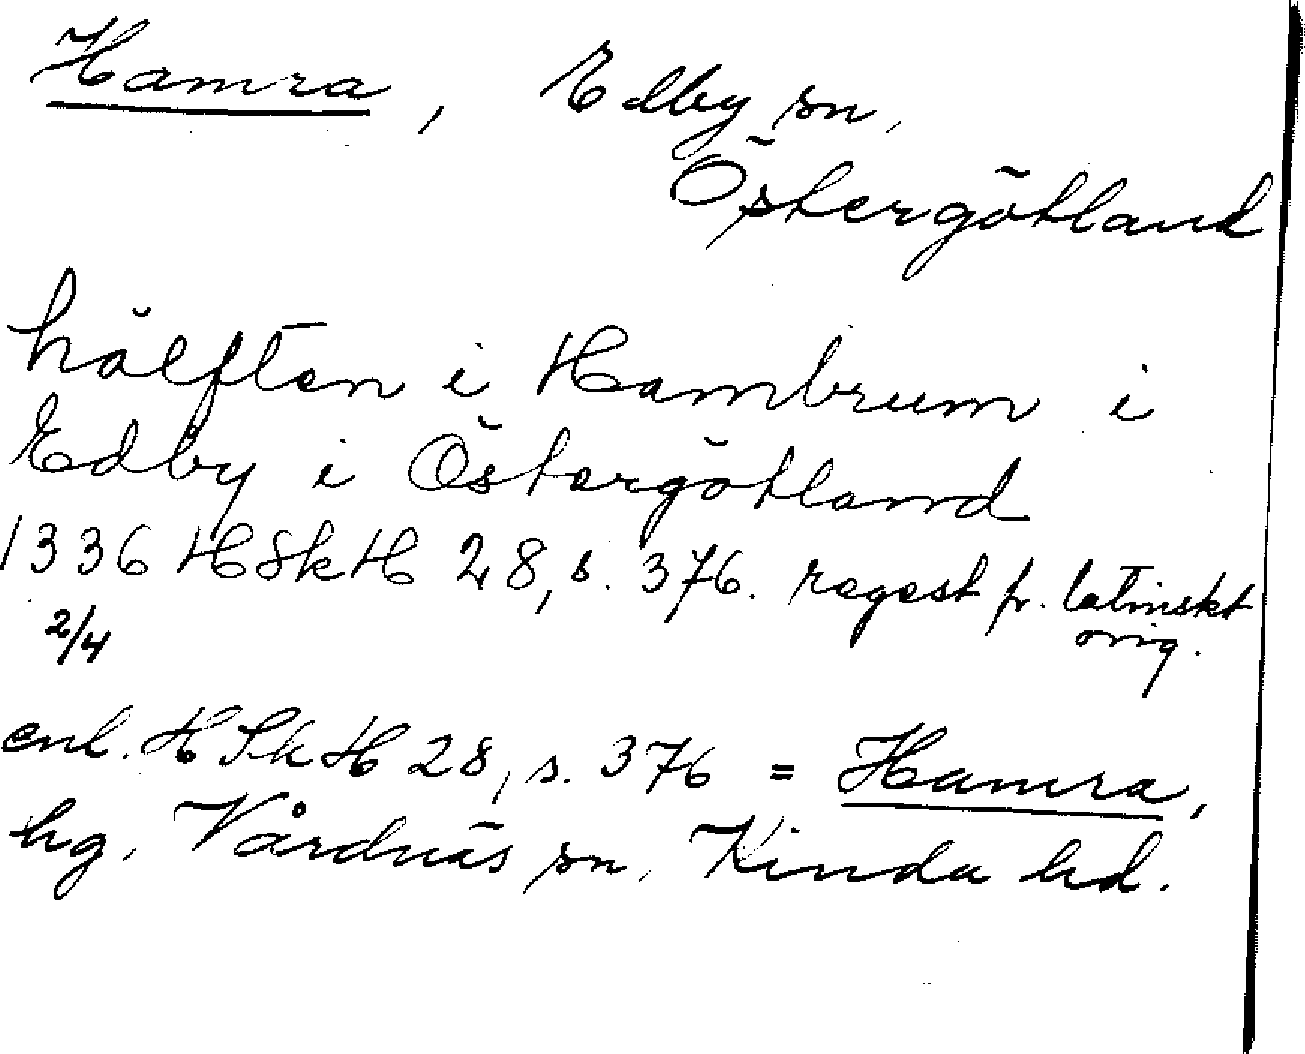 Hamra, Edby sn,
Östergötland
hälften i Hambrum i
Edby i Östergötland
1336 HSkH 28, s. 376. regest fr. latinskt
orig.
2/4
enl. HSkH 28, s. 376 = Hamra,
hg, Vårdnäs sn, Kinda hd.